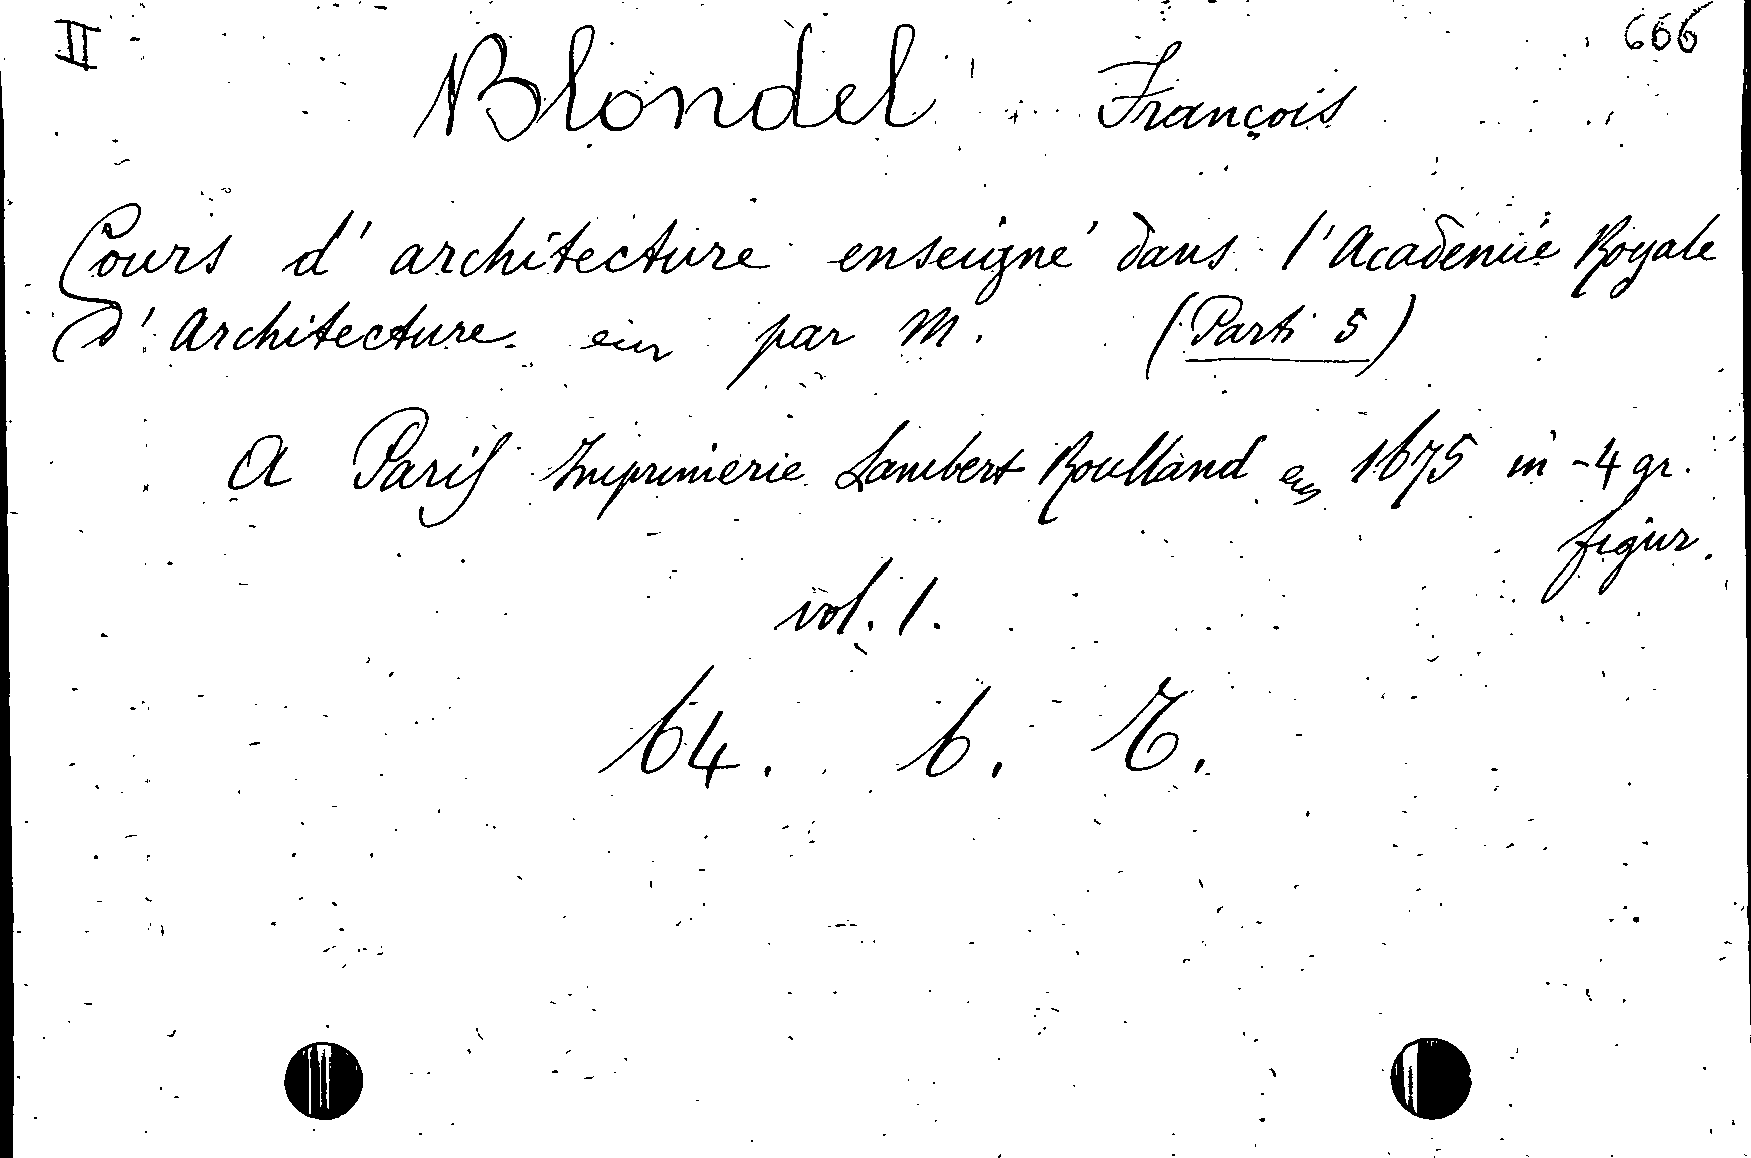 II 666
Blondel François
Cours d'architecture enseigné dans l'Academie Royale
d'Architecture par M. (Parti 5)
A Paris Imprimerie Lambert Roulland 1675 in -4 gr.
figur.
vol. 1.
64. 6.